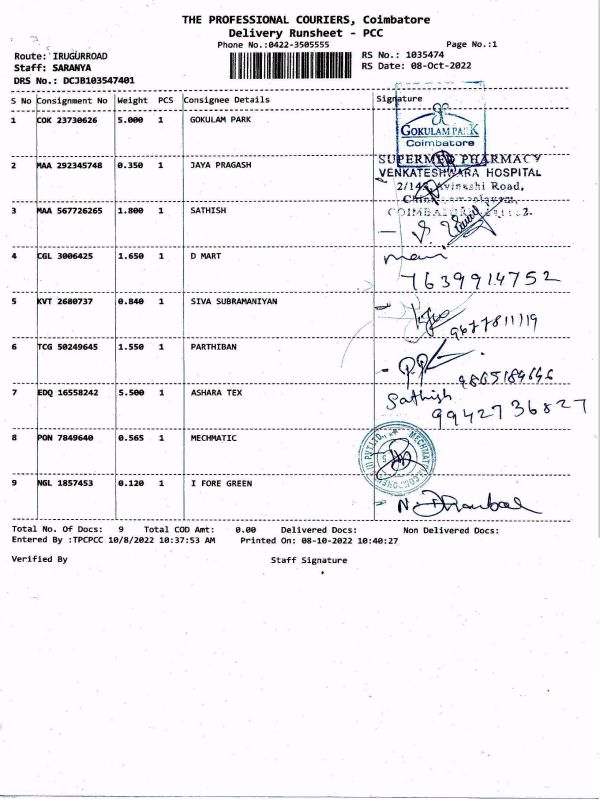 THE PROFESSIONAL COURIERS, Coimbatore
Delivery Runsheet - PCC
Phone No.:0422-3505555
Page No.:1
Route: IRUGURROAD
RS No.: 1035474
Staff: SARANYA
RS Date: 08-Oct-2022
DRS No.: DCJB103547401
S No Consignment No Weight PCS Consignee Details Signature
1 COK 23730626 5.000 1 GOKULAM PARK
GOKULAM PARK
Coimbatore
2 MAA 292345748 0.350 1 JAYA PRAGASH
SUPERMED PHARMACY
VENKATESHWARA HOSPITAL
2/145, Avinashi Road,
COIMBATORE
3 MAA 567726265 1.800 1 SATHISH
4 CGL 3006425 1.650 1 D MART
mani
7639914752
5 KVT 2680737 0.840 1 SIVA SUBRAMANIYAN
9677811119
6 TCG 50249645 1.550 1 PARTHIBAN
9865189646
7 EDQ 16558242 5.500 1 ASHARA TEX
Sathish
9942736827
8 PON 7849640 0.565 1 MECHMATIC
9 NGL 1857453 0.120 1 I FORE GREEN
Total No. Of Docs: 9 Total COD Amt: 0.00 Delivered Docs: Non Delivered Docs:
Entered By :TPCPCC 10/8/2022 10:37:53 AM Printed On: 08-10-2022 10:40:27
Verified By Staff Signature